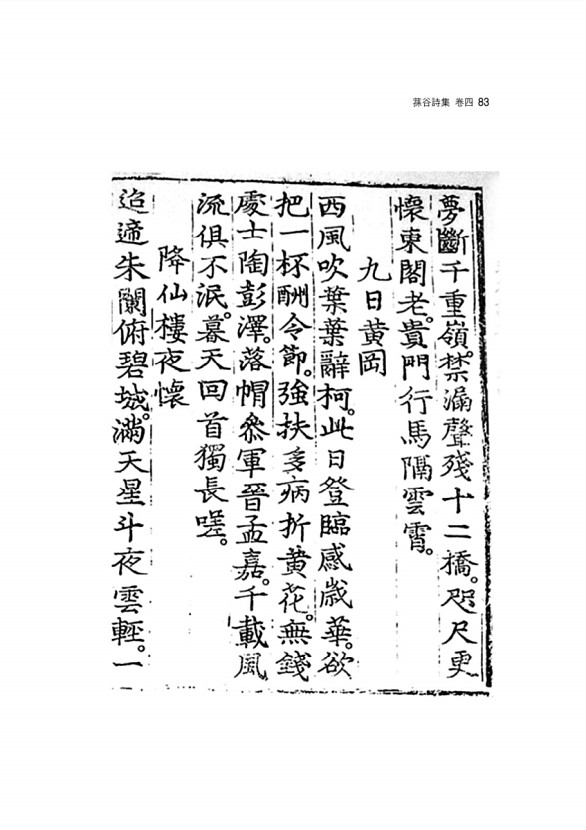 蓀谷詩集 卷四 83
夢斷千重嶺。禁漏聲殘十二橋。咫尺更
懷東閣老。貴門行馬隔雲霄。
九日黄岡
西風吹葉葉辭柯。此日登臨感歲華。欲
把一杯酬令節。強扶多病折黄花。無錢
處士陶彭澤。落帽叅軍晉孟嘉。千載風
流俱不泯。暮天回首獨長嗟。
降仙樓夜懷
迨遆朱闌俯碧城。滿天星斗夜雲輕。一